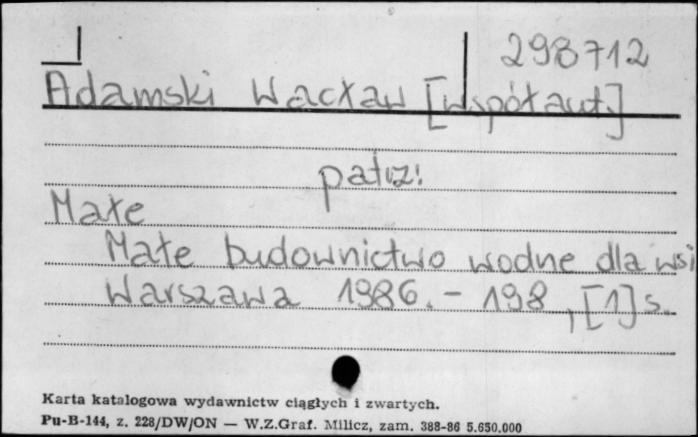 298712
Adamski Wacław [współaut.]
patrz:
Małe
Małe budownictwo wodne dla wsi
Warszawa 1986. - 198, [1] s.
Karta katalogowa wydawnictw ciągłych i zwartych.
Pu-B-144, z. 228/DW/ON — W.Z.Graf. Milicz, zam. 388-86 5.650.000